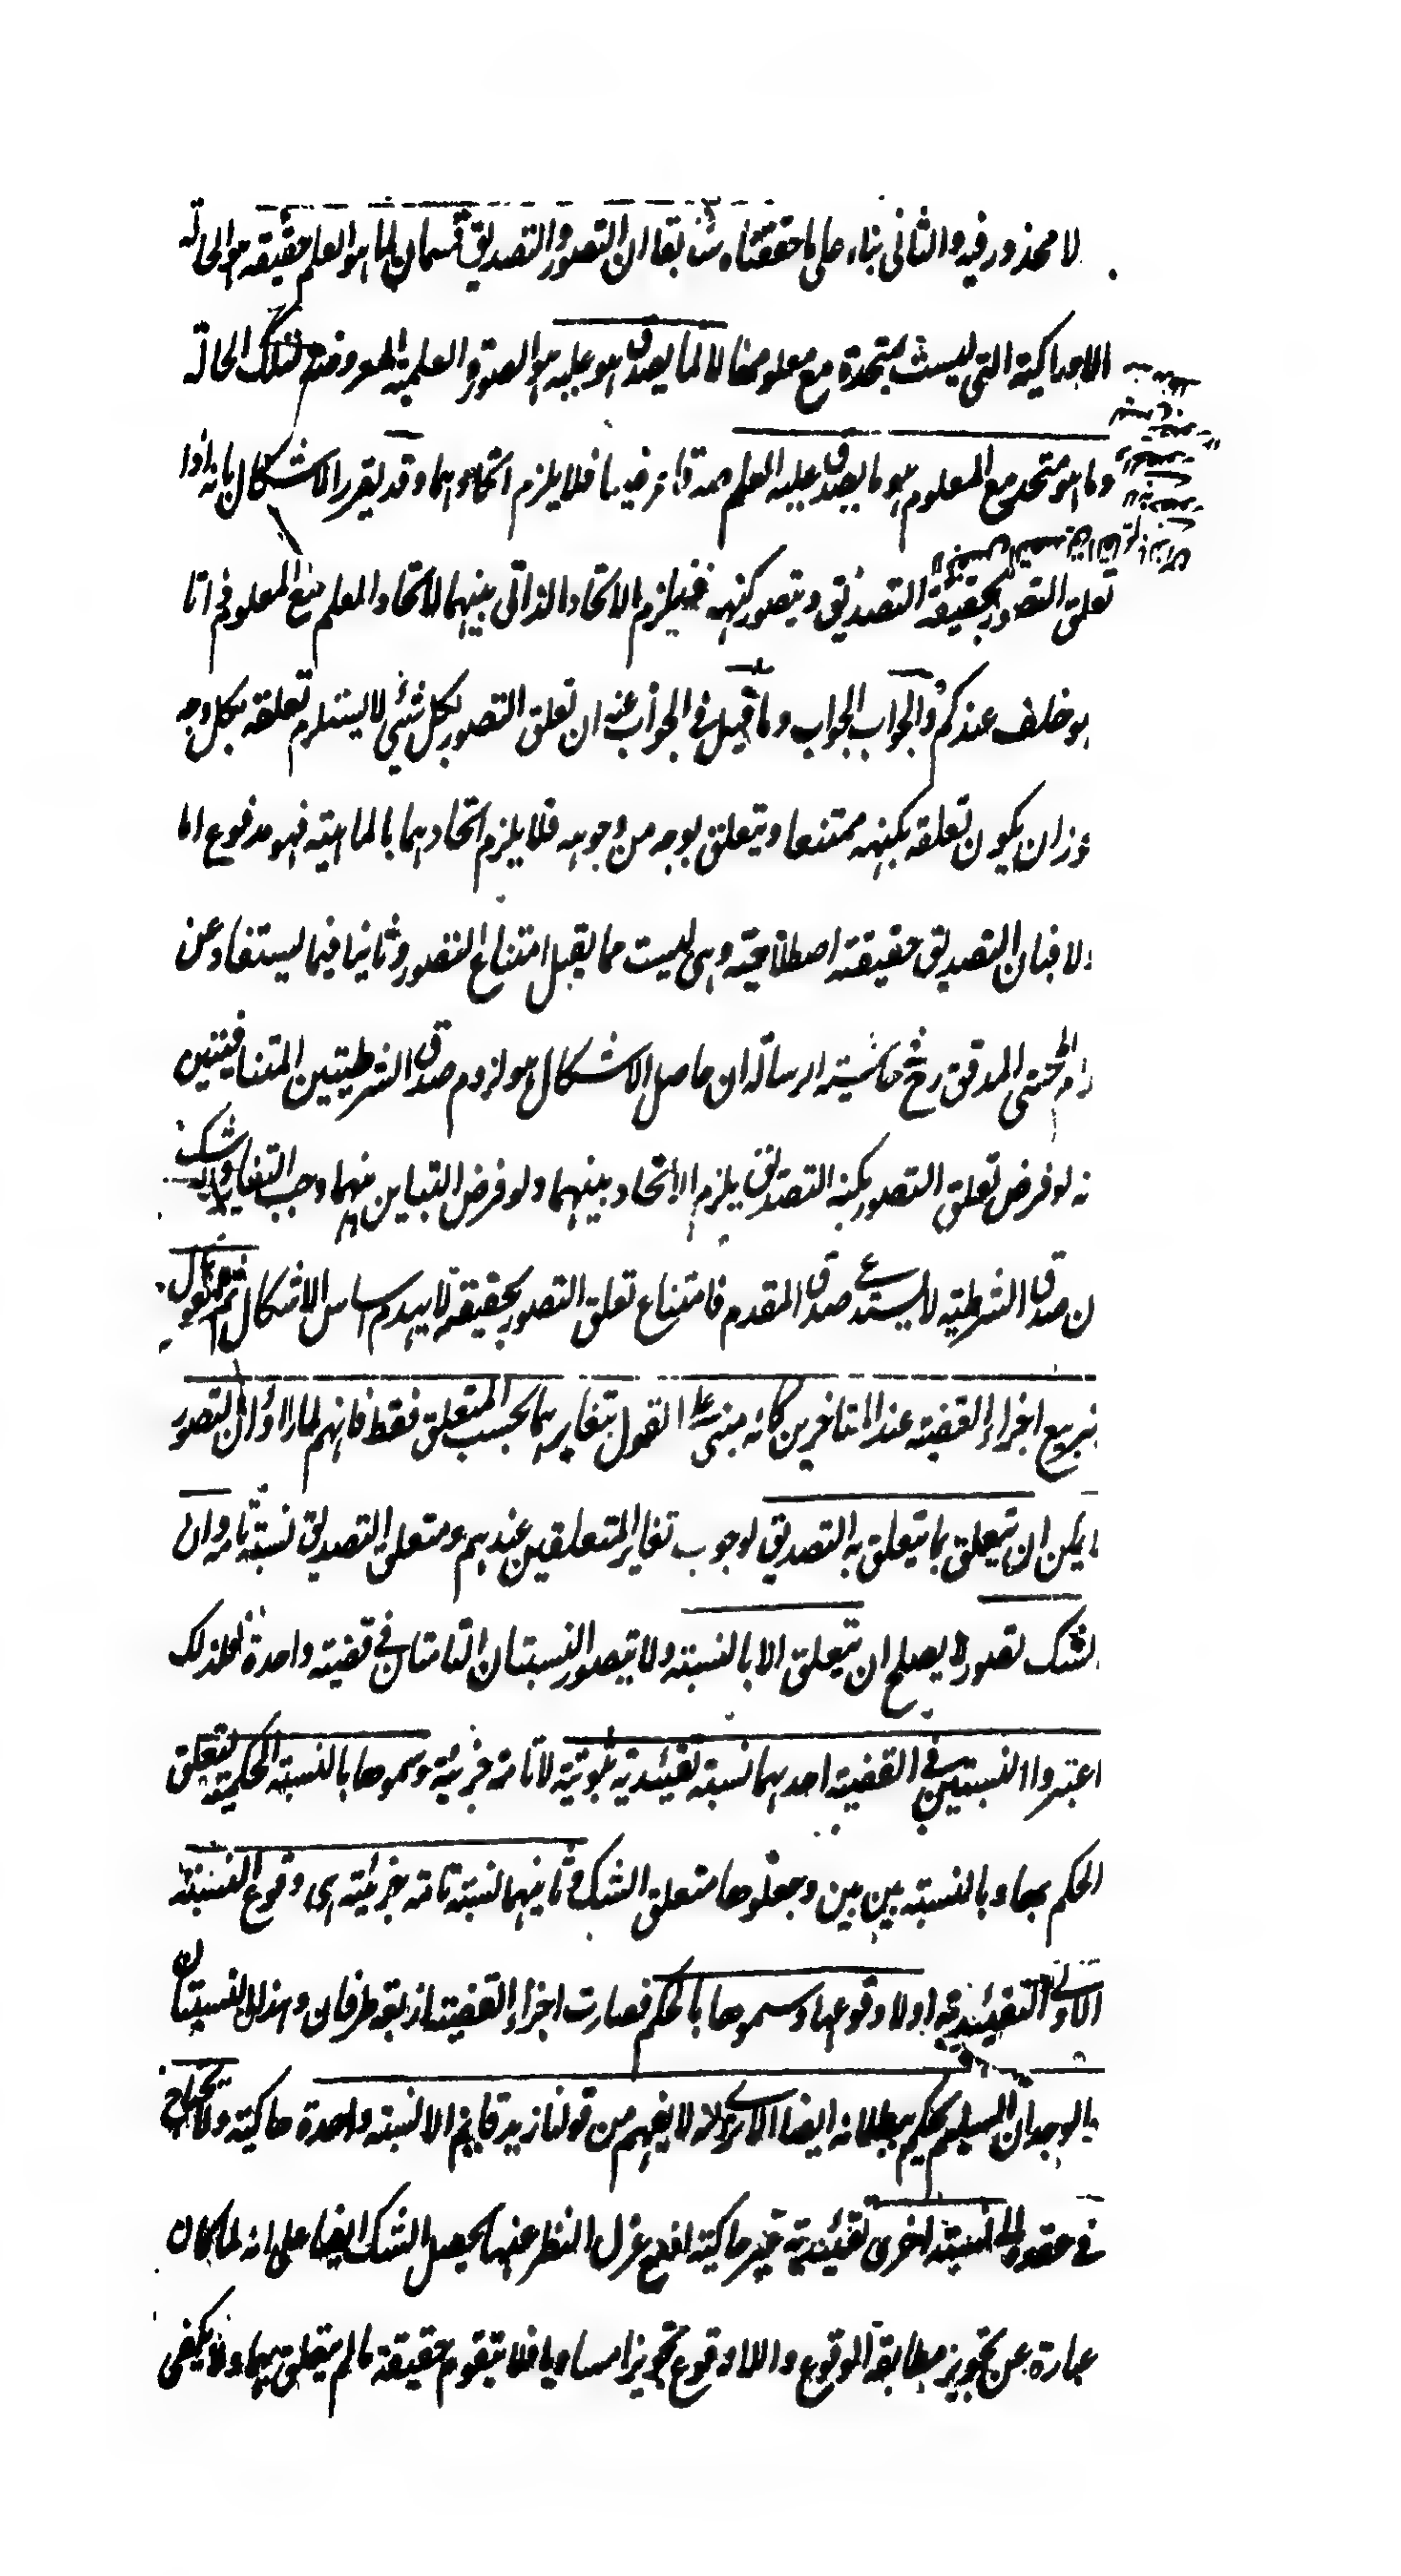 لا محذور فيه والثاني بناء على ما حققناه سابقا ان التصور والتصديق قسمان لما هو العلم حقيقة هو الحالة
الادراكية التي ليست بمتحدة مع معلومها لا لما يصدق هو عليه هو الصورة العلمية المعروضة لتلك الحالة
وما هو متحد مع المعلوم هو ما يصدق عليه العلم صدقا عرضيا فلا يلزم اتحادهما وقد يقرر الاشكال بانه اذا
تعلق التصور بحقيقة التصديق ويتصور كنهه فيلزم الاتحاد الذاتي بينهما لاتحاد العلم مع المعلوم ذاتا
هو خلف عندكم والجواب الجواب وما قيل في الجواب عنه ان تعلق التصور بكل شيء لا يستلزم تعلقه بكل وجه
وزان يكون تعلقه بكنهه ممتنعا ويتعلق بوجه من وجوهه فلا يلزم اتحادهما بالماهية فهو مدفوع اما
ولا فبان التصديق حقيقة اصطلاحية وهي ليست مما يقبل امتناع التصور وثانيا فيما يستفاد عن
المحشي المدقق رح حاشية الرسالة ان حاصل الاشكال هو لزوم صدق الشرطيتين المتنافيتين
نه لو فرض تعلق التصور بكنه التصديق يلزم الاتحاد بينهما ولو فرض التباين منهما وجب التغاير
ن صدق الشرطية لا يستدعي صدق المقدم فامتناع تعلق التصور بحقيقته لا يهدم اساس الاشكال ثم القول
بتربيع اجزاء القضية عند المتاخرين كانه مبني على القول بتغايرهما بحسب المتعلق فقط فانهم لما راوا ان التصور
يمكن ان يتعلق بما يتعلق به التصديق لوجوب تغاير المتعلقين عندهم ومتعلق التصديق نسبة تامة وان
لشك تصور لا يصلح ان يتعلق الا بالنسبة ولا يتصور النسبتان التامتان في قضية واحدة فلذلك
اعتبروا النسبتين في القضية احدهما نسبة تقييدية ثبوتية لا تامة خبرية وسموها بالنسبة الحكمية لتعلق
الحكم بها وبالنسبة بين بين وجعلوها متعلق الشك وثانيهما نسبة تامة خبرية هي وقوع النسبة
الاولى التقييدية او لا وقوعها وسموها بالحكم فصارت اجزاء القضية اربعة طرفان وهذان النسبتان
والوجدان السليم يحكم ببطلانه ايضا الا ترى انه لا يفهم من قولنا زيد قايم الا نسبة واحدة حاكية ولا يحتاج
في عقده الى نسبة اخرى تقييدية غير حاكية اذ مع عزل النظر عنها يحصل الشك ايضا على انه لما كان
عبارة عن تجويز مطابقة الوقوع واللاوقوع تجويزا مساويا فلا يتقوم حقيقة ما لم يتعلق بهما ولا يكفي